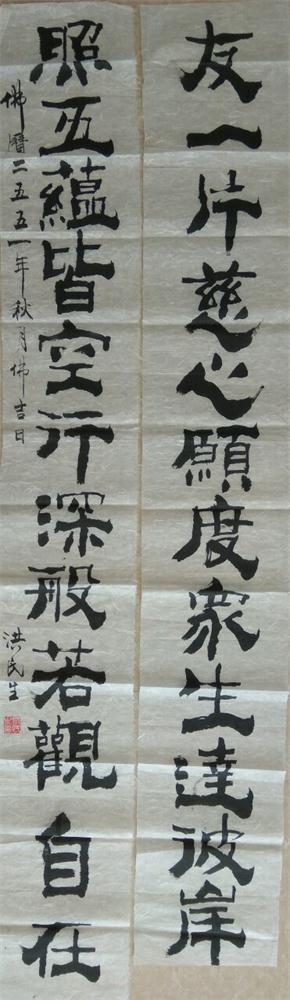 友一片慈心願度眾生達彼岸
照五蘊皆空行深般若觀自在
佛曆二五五一年秋月佛吉日
洪民生